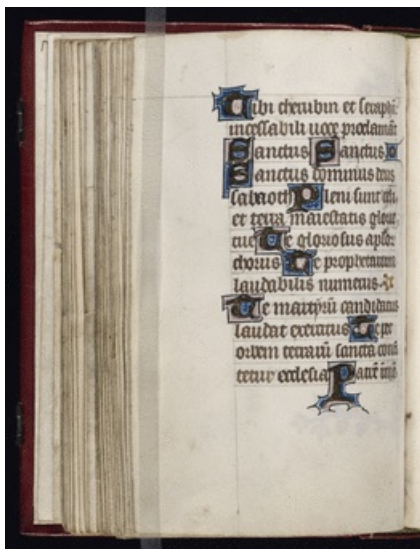 Tibi cherubin et seraphin
incessabili uoce proclamāt
Sanctus Sanctus
Sanctus dominus deus
sabaoth Pleni sunt celi
et terra maiestatis glorie
tue Te gloriosus aplōr
chorus Te prophetarum
laudabilis numerus
Te martyrū candidatus
laudat exercitus Te per
orbem terrarū sancta confi
tetur ecclesia Patrē